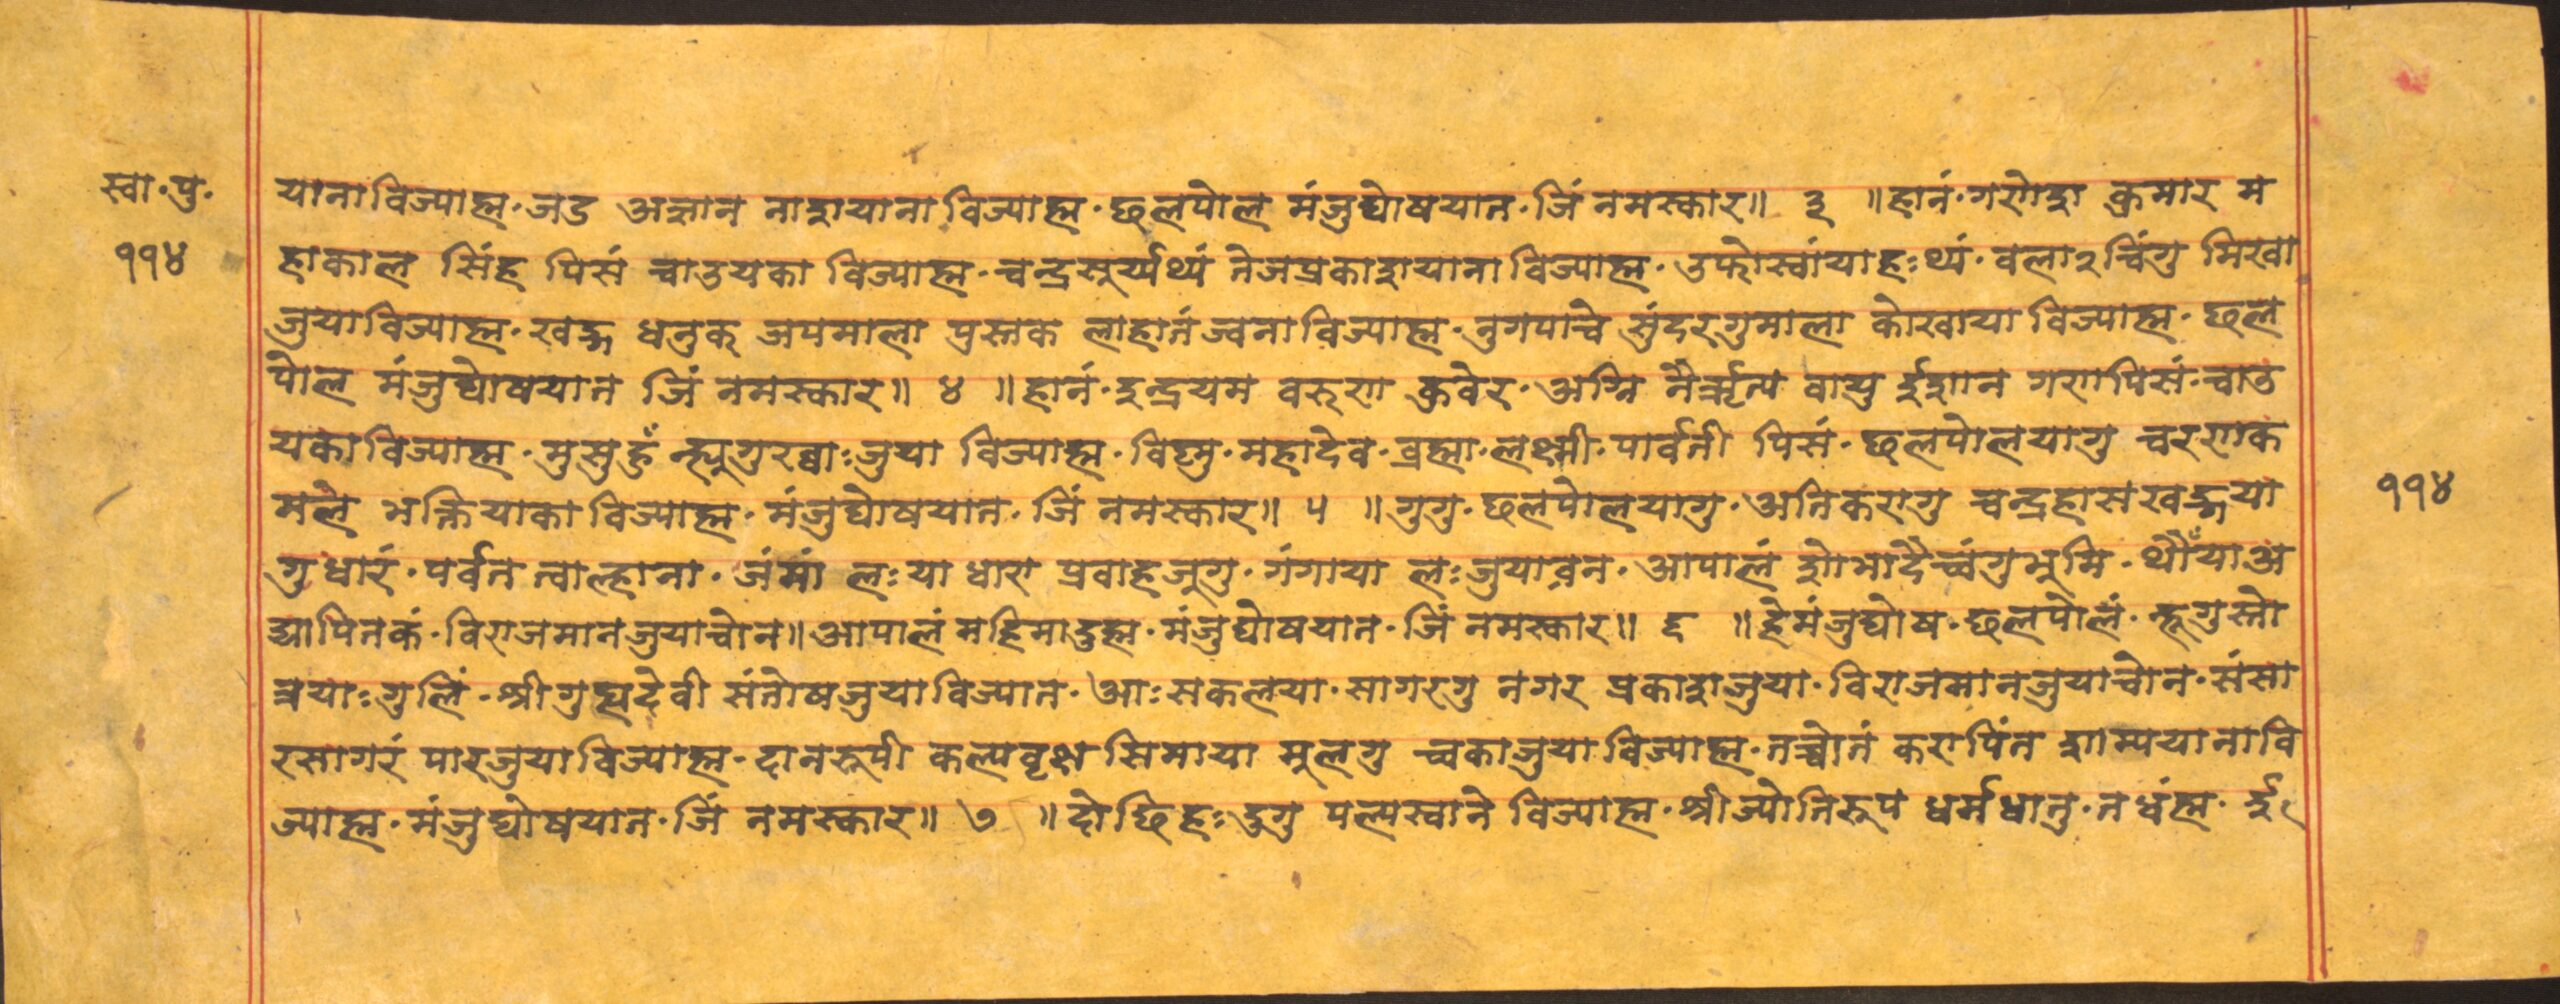 स्वा॰पु॰
११४
यानाविज्याह्म॰जड अज्ञान नाशयाना विज्याह्म॰छलपोल मंजुघोषयात॰जिं नमस्कार॥ ३ ॥हानं॰गणेश कुमार म
हाकाल सिंह पिसं चाउयका विज्याह्म॰चन्द्रसूर्य्यथ्यं तेजप्रकाशयाना विज्याह्म॰उफोस्वांयाहः थ्यं॰वलार चिंगु मिखा
जुयाविज्याह्म॰खड्ग धनुक् जपमाला पुस्तक लाहातं ज्वनाविज्याह्म॰नुगपाचे सुंदरगुमाला कोखाया विज्याह्म॰छल
पोल मंजुघोषयात जिं नमस्कार॥ ४ ॥हानं॰इन्द्रयम वरुण कुवेर॰अग्नि नैर्ऋत्य वायु ईशान गणपिसं॰चाउ
यकाविज्याह्म॰मुसुहुँ न्ह्यूगुरव्वाःजुया विज्याह्म॰विष्णु॰महादेव॰व्रह्मा॰लक्ष्मी॰पार्वती पिसं॰छलपोलयागु चरणक
मले भक्तियाका विज्याह्म॰मंजुघोषयात॰जिं नमस्कार॥ ५ ॥गुगु॰छलपोलयागु॰अतिकरागु चन्द्रहासखड्गया
गु धारं॰पर्वत त्वाल्हाना॰जंमां लःया धारा प्रवाहजुगु॰गंगाया लःजुयावन॰आपालं शोभादैच्वंगुभूमि॰थौंया अ
द्यापितकं॰विराजमानजुयाचोन॥आपालं महिमादुह्म॰मंजुघोषयात॰जिं नमस्कार॥ ६ ॥हेमंजुघोष॰छलपोलं॰न्हूगुस्तो
त्रयाःगुलिं॰श्रीगुह्यदेवी संतोषजुयाविज्यात॰आः सकलया॰सागरगु नगर प्रकाशजुया॰विराजमानजुयाचोन॰संसा
रसागरं पारजुयाविज्याह्म॰दानरूपी कल्पवृक्ष सिमाया मूलगु च्वकाजुया विज्याह्म॰तच्वोतं करापिंत शाम्ययानावि
ज्याह्म॰मंजुघोषयात॰जिं नमस्कार॥ ७ ॥दोछिहःदुगु पल्यस्वाने विज्याह्म॰श्रीज्योतिरूप धर्मधातु॰न धंह्म॰ई
११४